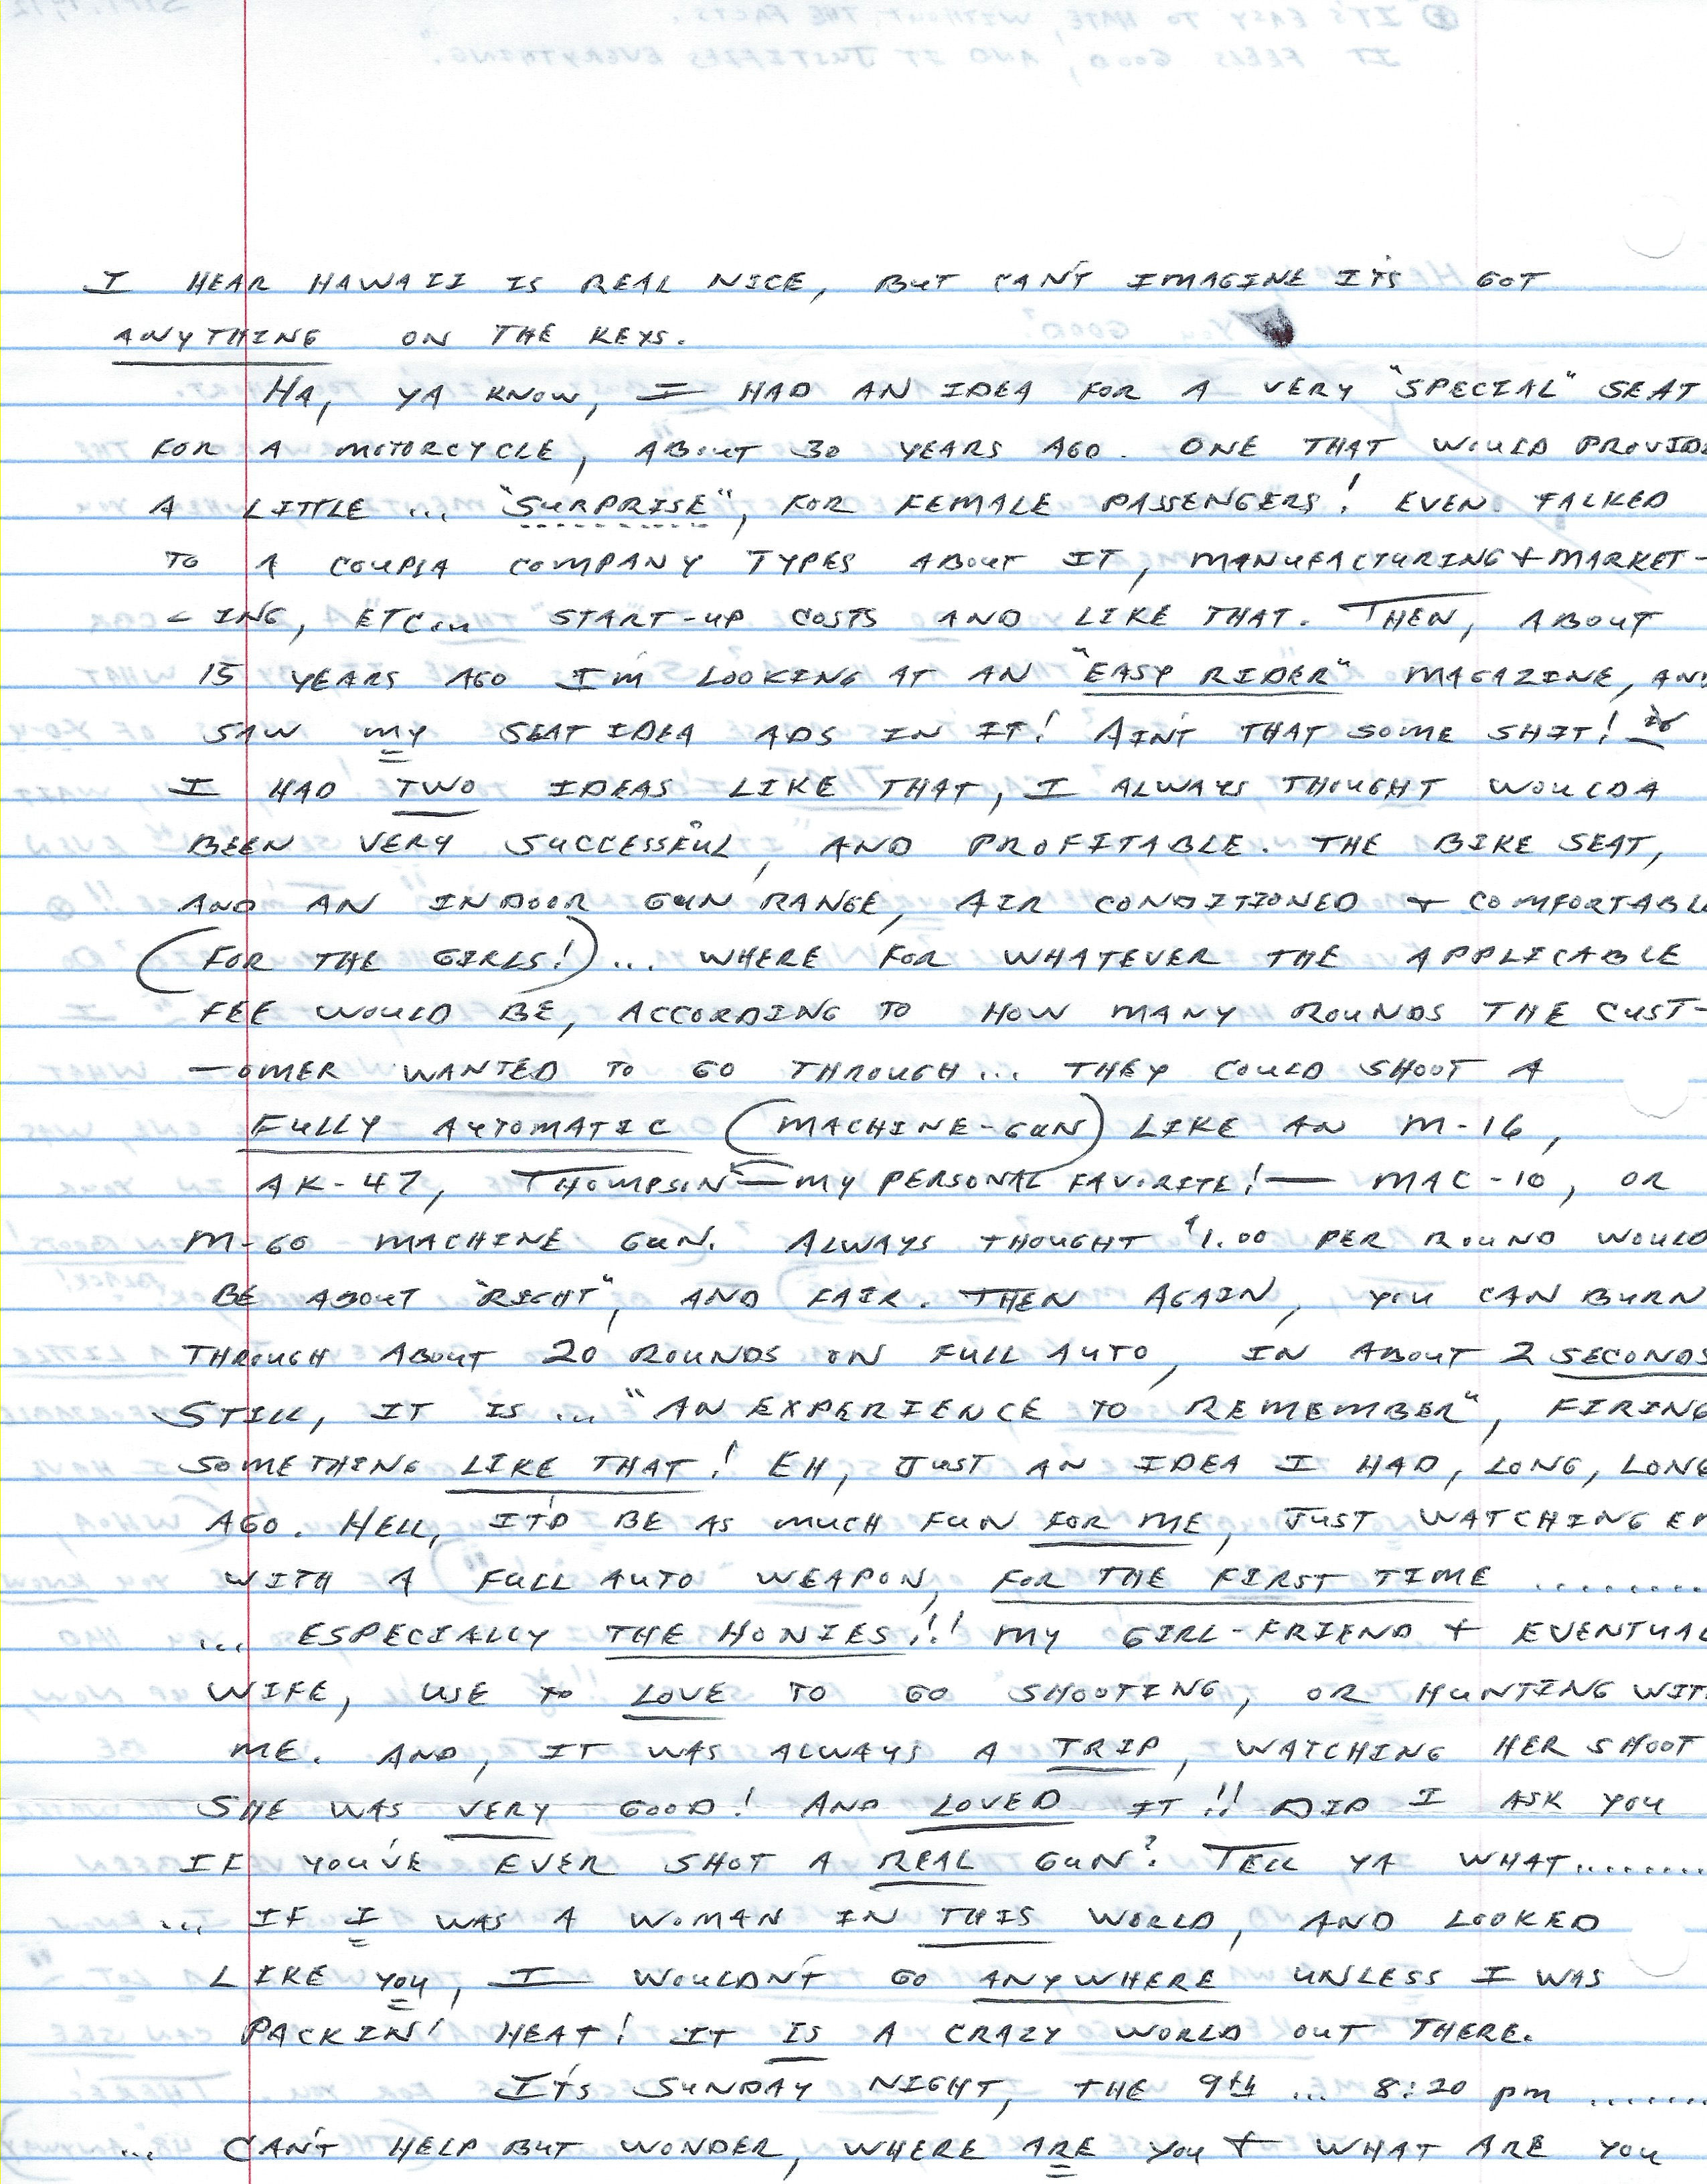 I HEAR HAWAII IS REAL NICE, BUT CAN'T IMAGINE IT'S GOT
ANYTHING ON THE KEYS.
HA, YA KNOW, I HAD AN IDEA FOR A VERY "SPECIAL" SEAT
FOR A MOTORCYCLE, ABOUT 30 YEARS AGO. ONE THAT WOULD PROVIDE
A LITTLE ... "SURPRISE", FOR FEMALE PASSENGERS! EVEN TALKED
TO A COUPLA COMPANY TYPES ABOUT IT, MANUFACTURING + MARKET-
- ING, ETC... START-UP COSTS AND LIKE THAT. THEN, ABOUT
15 YEARS AGO I'M LOOKING AT AN "EASY RIDER" MAGAZINE, AND
SAW MY SEAT IDEA ADS IN IT! AIN'T THAT SOME SHIT!
I HAD TWO IDEAS LIKE THAT, I ALWAYS THOUGHT WOULDA
BEEN VERY SUCCESSFUL, AND PROFITABLE. THE BIKE SEAT,
AND AN INDOOR GUN RANGE, AIR CONDITIONED + COMFORTABLE
(FOR THE GIRLS!)... WHERE FOR WHATEVER THE APPLICABLE
FEE WOULD BE, ACCORDING TO HOW MANY ROUNDS THE CUST-
-OMER WANTED TO GO THROUGH... THEY COULD SHOOT A
FULLY AUTOMATIC (MACHINE-GUN) LIKE AN M-16,
AK-47, THOMPSON — MY PERSONAL FAVORITE! — MAC-10, OR
M-60 MACHINE GUN. ALWAYS THOUGHT $1.00 PER ROUND WOULD
BE ABOUT "RIGHT", AND FAIR. THEN AGAIN, YOU CAN BURN
THROUGH ABOUT 20 ROUNDS ON FULL AUTO, IN ABOUT 2 SECONDS
STILL, IT IS ... "AN EXPERIENCE TO REMEMBER", FIRING
SOMETHING LIKE THAT! EH, JUST AN IDEA I HAD, LONG, LONG
AGO. HELL, IT'D BE AS MUCH FUN FOR ME, JUST WATCHING EM
WITH A FULL AUTO WEAPON, FOR THE FIRST TIME .........
... ESPECIALLY THE HONIES!!! MY GIRL-FRIEND + EVENTUAL
WIFE, USE TO LOVE TO GO SHOOTING, OR HUNTING WITH
ME. AND, IT WAS ALWAYS A TRIP, WATCHING HER SHOOT
SHE WAS VERY GOOD! AND LOVED IT!! DID I ASK YOU
IF YOU'VE EVER SHOT A REAL GUN? TELL YA WHAT........
... IF I WAS A WOMAN IN THIS WORLD, AND LOOKED
LIKE YOU, I WOULDN'T GO ANYWHERE UNLESS I WAS
PACKIN' HEAT! IT IS A CRAZY WORLD OUT THERE.
IT'S SUNDAY NIGHT, THE 9th ... 8:20 pm .......
... CAN'T HELP BUT WONDER, WHERE ARE YOU + WHAT ARE YOU